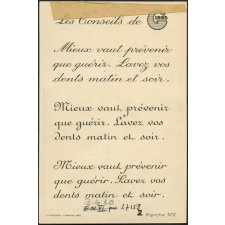 Les Conseils de
1885
Mieux vaut prévenir
que guérir. Lavez vos
dents matin et soir.
Mieux vaut prévenir
que guérir. Lavez vos
dents matin et soir.
Mieux vaut prévenir
que guérir. Lavez vos
dents matin et soir.
Planche Nº2